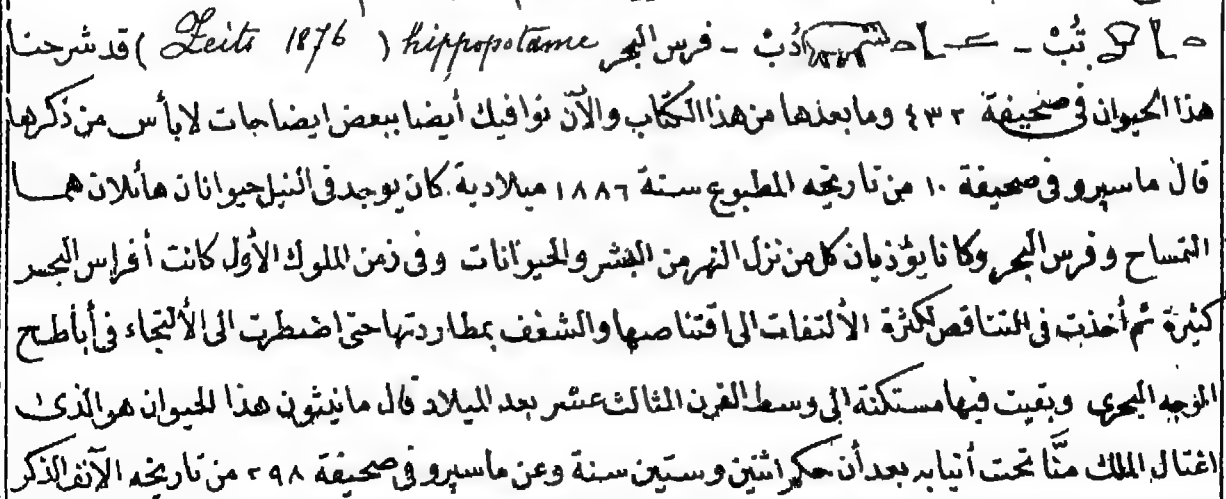 تُبْ - دُبْ - فرس البحر hippopotame ( Zeits 1876 ) قد شرحنا
هذا الحيوان فى صحيفة ٤٣٢ وما بعدها من هذا الكتاب والآن نوافيك أيضا ببعض ايضاحات لا بأس من ذكرها
قال ماسپرو فى صحيفة ١٠ من تاريخه المطبوع سنة ١٨٨٦ ميلادية كان يوجد فى النيل حيوانان هائلان هما
التمساح وفرس البحر وكانا يؤذيان كل من نزل النهر من البشر والحيوانات وفى زمن الملوك الأول كانت أفراس البحر
كثيرة ثم أخذت فى التناقص لكثرة الألتفات الى اقتناصها والشغف بمطاردتها حتى اضطرت الى الألتجاء فى أباطح
الوجه البحرى وبقيت فيها مستكنة الى وسط القرن الثالث عشر بعد الميلاد قال مانيثون هذا الحيوان هو الذى
اغتال الملك منَّا تحت أنيابه بعد أن حكم اثنين وستين سنة وعن ماسپرو فى صحيفة ٢٩٨ من تاريخه الآنف الذكر